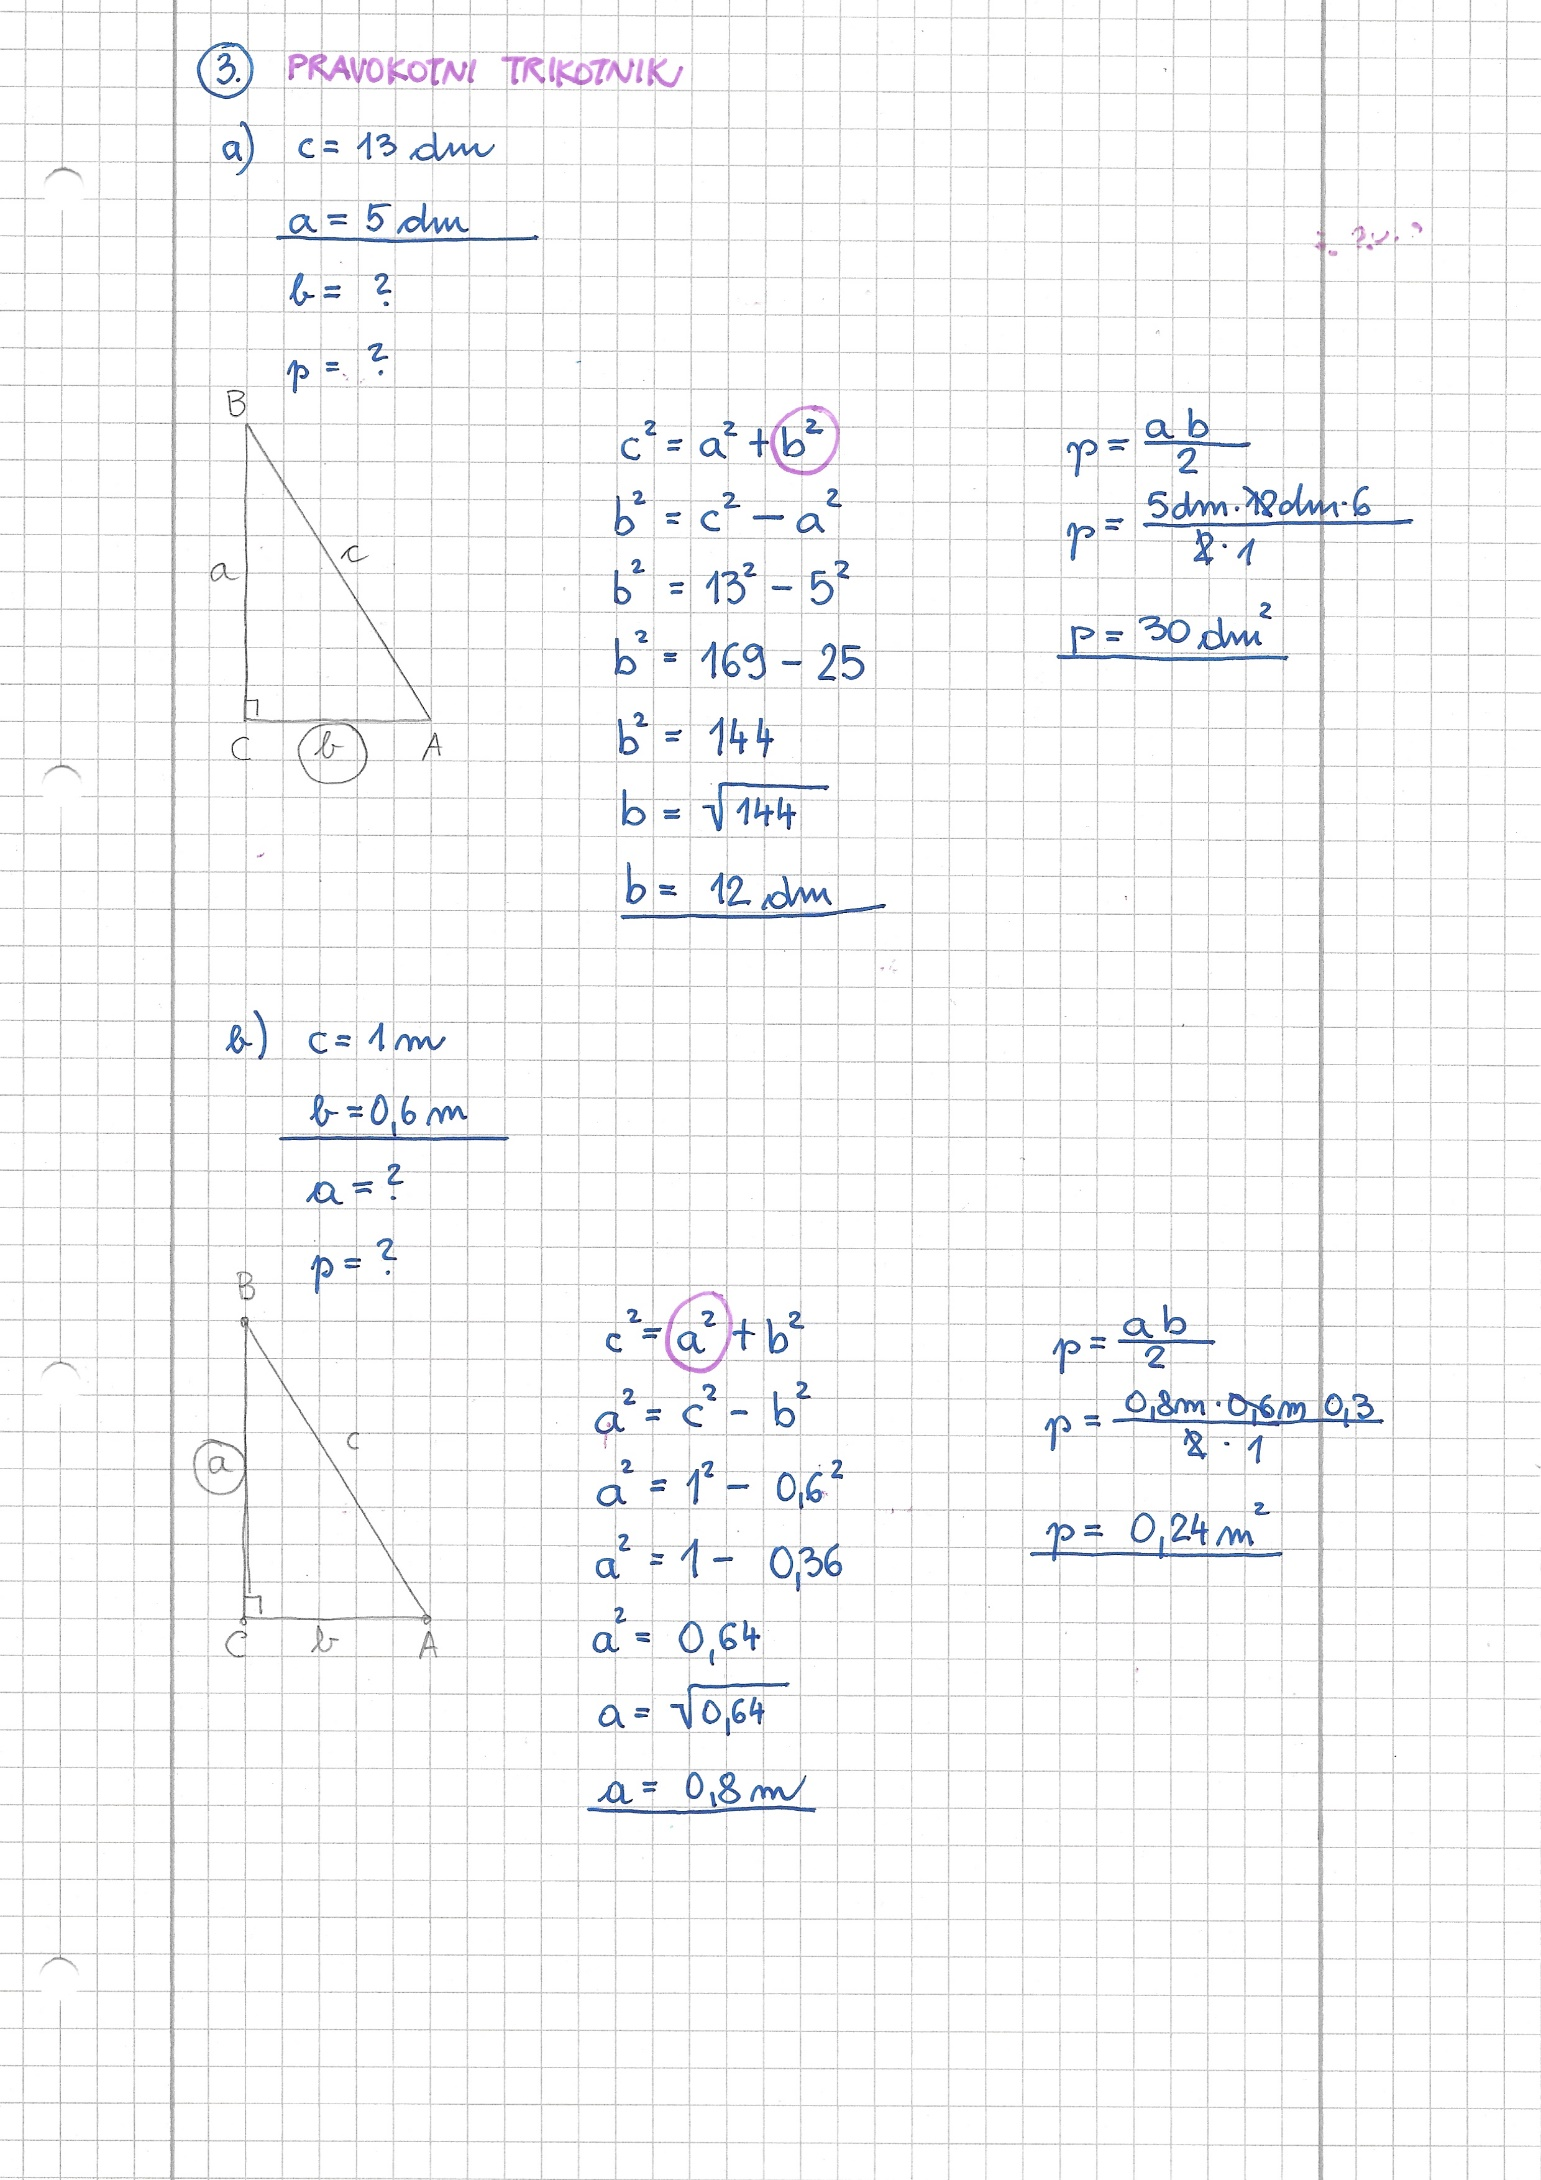 3. PRAVOKOTNI TRIKOTNIK
a) c = 13 dm
a = 5 dm
b = ?
p = ?
B
a
c
C b A
c² = a² + b²
b² = c² - a²
b² = 13² - 5²
b² = 169 - 25
b² = 144
b = √144
b = 12 dm
p = ab/2
p = 5dm · 12dm · 6 / 2 · 1
p = 30 dm²
b) c = 1 m
b = 0,6 m
a = ?
p = ?
B
a
c
C b A
c² = a² + b²
a² = c² - b²
a² = 1² - 0,6²
a² = 1 - 0,36
a² = 0,64
a = √0,64
a = 0,8 m
p = ab/2
p = 0,8m · 0,6m 0,3 / 2 · 1
p = 0,24 m²